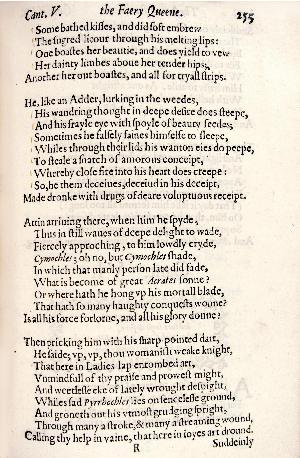 Cant. V. the Faery Queene. 255
Some bathed kisses, and did soft embrew
The sugred licour through his melting lips:
One boastes her beautie, and does yield to vew
Her dainty limbes aboue her tender hips;
Another her out boastes, and all for tryall strips.
He, like an Adder, lurking in the weedes,
His wandring thought in deepe desire does steepe,
And his frayle eye with spoyle of beauty feedes;
Sometimes he falsely faines himselfe to sleepe,
Whiles through their lids his wanton eies do peepe,
To steale a snatch of amorous conceipt,
Whereby close fire into his heart does creepe:
So, he them deceiues, deceiud in his deceipt,
Made dronke with drugs of deare voluptuous receipt.
Atin arriuing there, when him he spyde,
Thus in still waues of deepe delight to wade,
Fiercely approching, to him lowdly cryde,
Cymochles; oh no, but Cymochles shade,
In which that manly person late did fade,
What is become of great Acrates sonne?
Or where hath he hong vp his mortall blade,
That hath so many haughty conquests wonne?
Is all his force forlorne, and all his glory donne?
Then pricking him with his sharp-pointed dart,
He saide; vp, vp, thou womanish weake knight,
That here in Ladies lap entombed art,
Vnmindfull of thy praise and prowest might,
And weetlesse eke of lately wrought despight,
Whiles sad Pyrrhochles lies on senselesse ground,
And groneth out his vtmost grudging spright,
Through many a stroke, & many a streaming wound,
Calling thy help in vaine, that here in ioyes art dround.
R Suddeinly